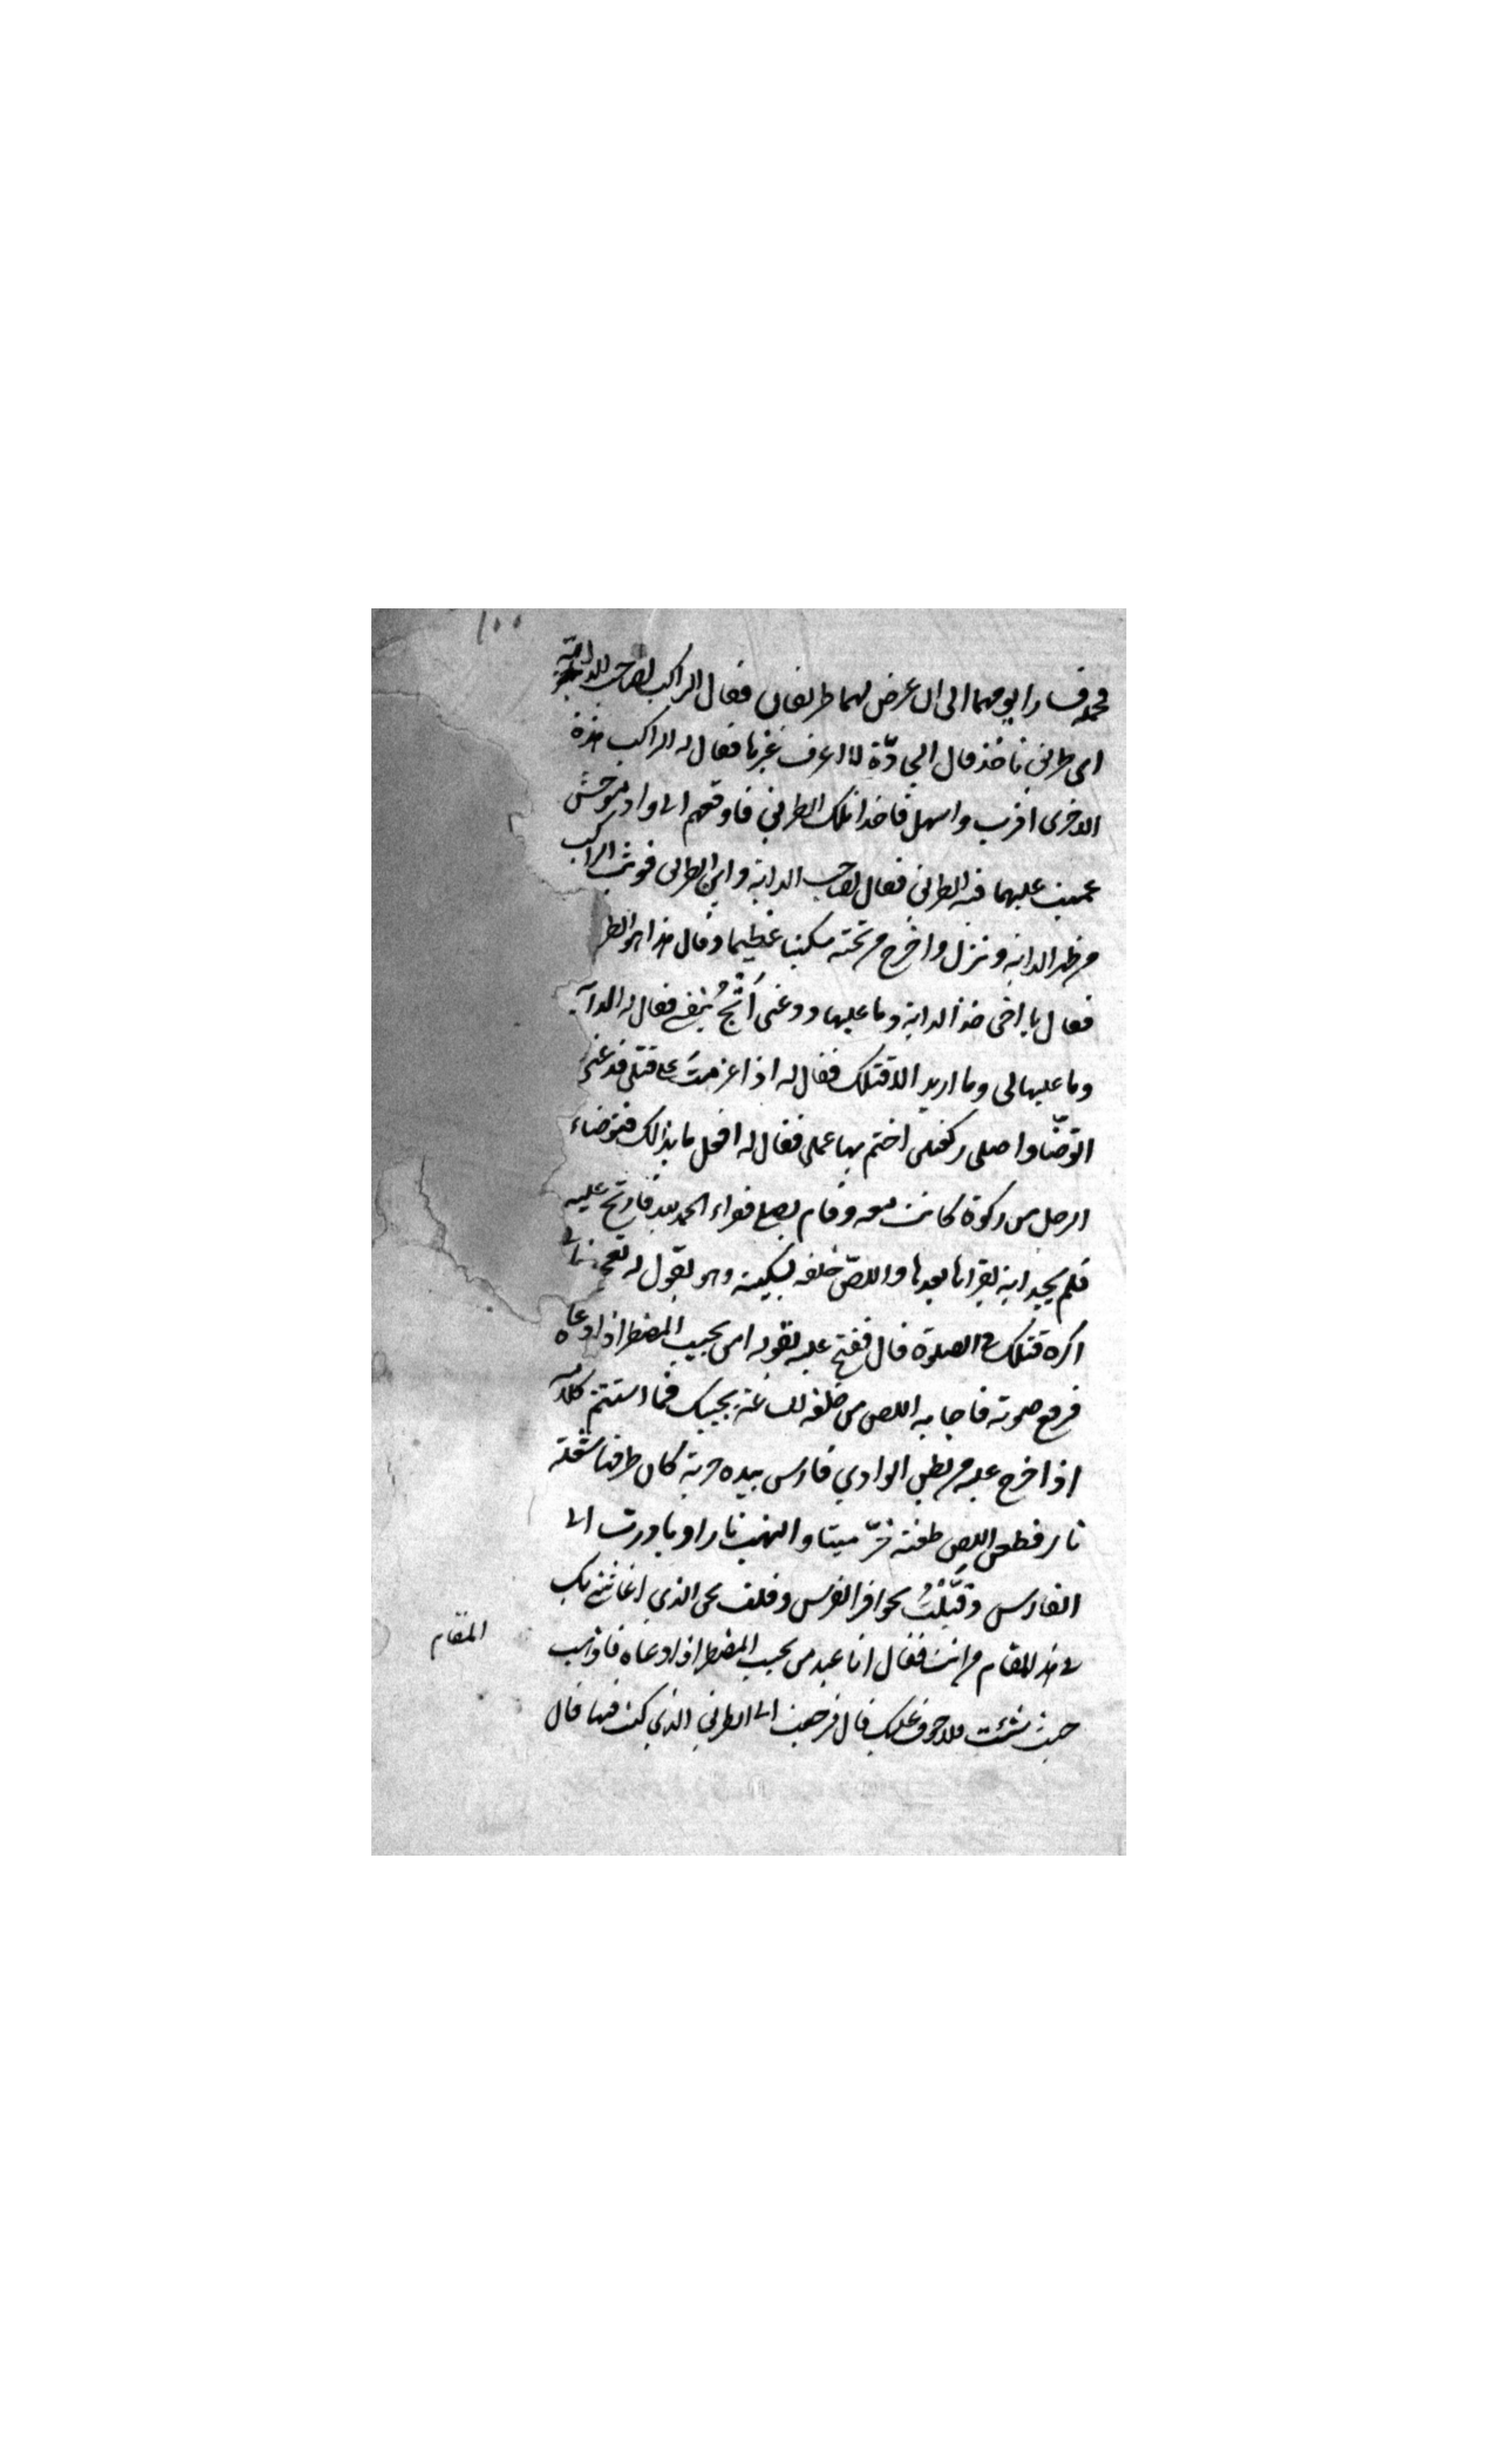 ١٠٠
فحمله فسارا يومهما الى ان عرض لهما طريقان فقال الراكب لصاحب الدابة
اى طريق ناخذ قال الجادّة لا اعرف غيرها فقال له الراكب هذه
الاخرى اقرب واسهل فاخذا تلك الطريق فاوقعهم الى واد متوحش
عميت عليهما فيه الطريق فقال لصاحب الدابة واين الطريق فوثب الراكب
من ظهر الدابة ونزل واخرج من تحته سكينا عظيما وقال هذا هو الطر
فقال يا اخى خذ الدابة وما عليها ودعنى اَنْجُ بنفسى فقال له الدابة
وما عليها لى وما اريد الا قتلك فقال له اذا عزمتَ على قتلى فدعنى
اتوضّا واصلى ركعتين اختم بها عملى فقال له افعل ما بذالك فتوضاء
الرجل من ركوة كانت معه وقام يصلى فقراء الحمد لله فارتج عليه
فلم يجد اية يقراها بعدها واللصّ خلفه بسكينه وهو يقول له عجّل
اكره قتلك فى الصلوة قال ففتح عليه بقوله امن يجيب المضطر اذا دعاه
فرفع صوته فاجابه اللص من خلفه الساعة يجيبك فما استتم كلامه
اذا خرج عليه من بطن الوادي فارس بيده حربة كان طرفها شعلة
نار فطعن اللص طعنة خرّ ميتا والتهب نارا وبادرت الى
الفارس وقَبَّلْتُ حوافر الفرس وقلت بحق الذي اغاثنى بك
فى هذا المقام من انت فقال انا عبد من يجيب المضطر اذا دعاه فاذهب
حيث شئت فلا خوف عليك قال فرجعت الى الطريق الذي كنت فيها قال
المقام